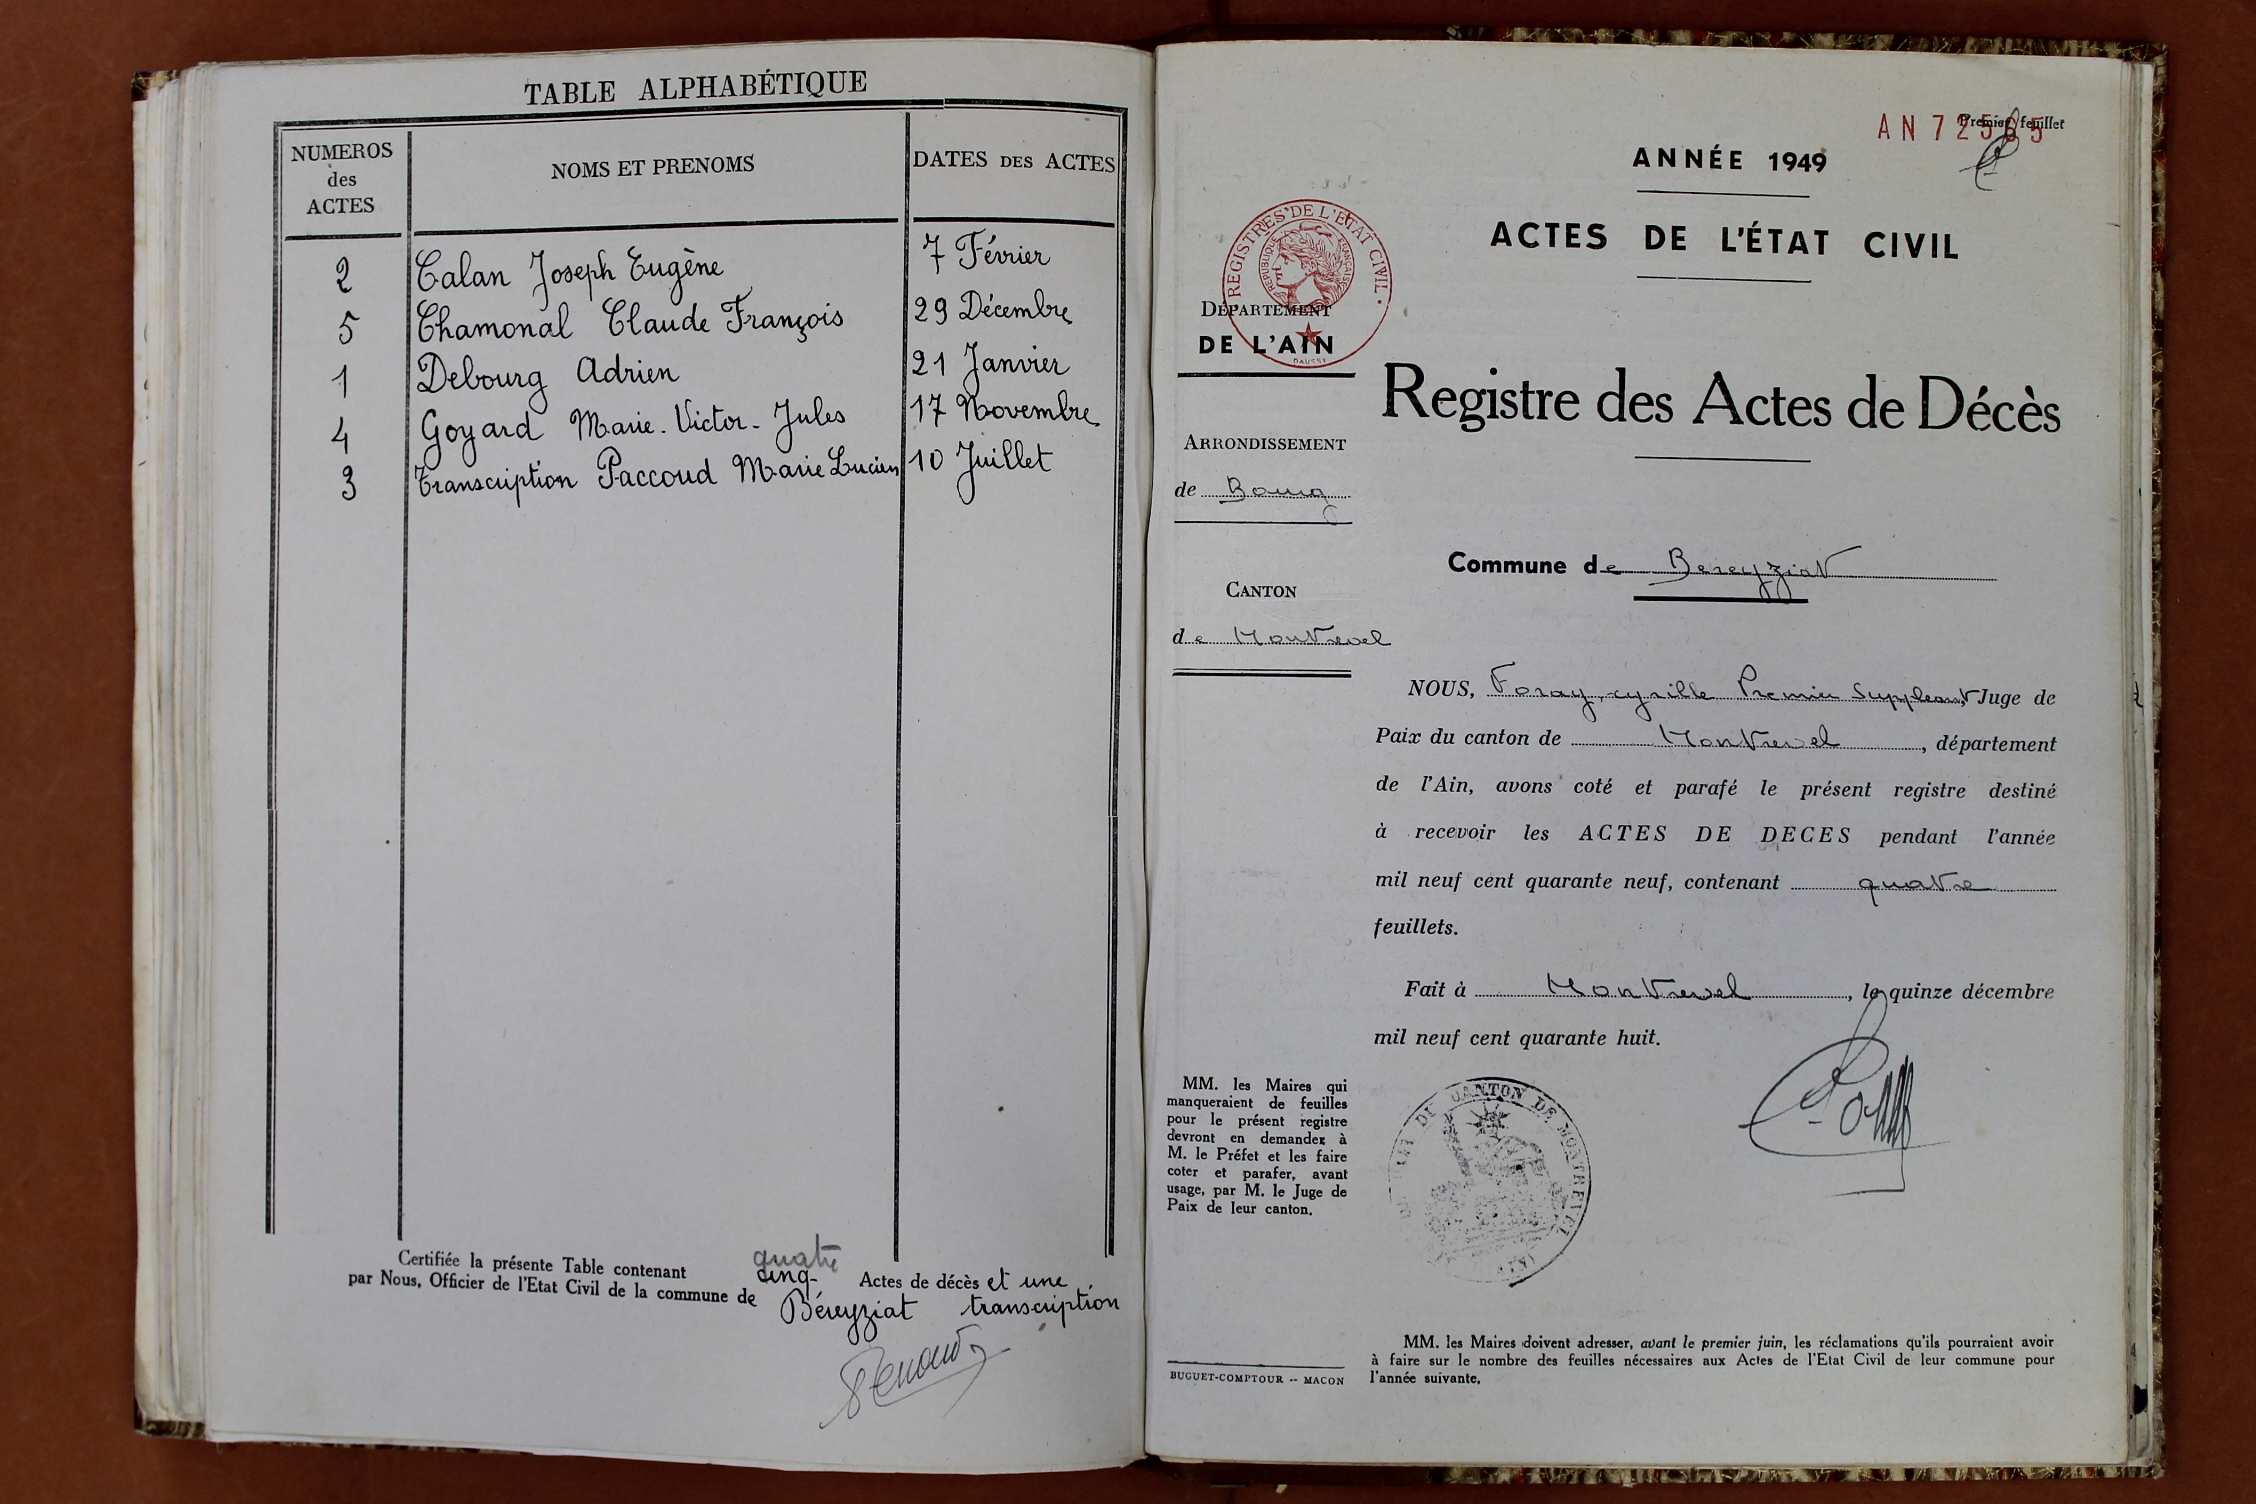 TABLE ALPHABÉTIQUE
NUMEROS
des
ACTES
NOMS ET PRENOMS
DATES DES ACTES
2 Calan Joseph Eugène 7 Février
5 Chamonal Claude François 29 Décembre
1 Debourg Adrien 21 Janvier
4 Goyard Marie-Victor-Jules 17 Novembre
3 Transcription Paccoud Marie Lucien 10 Juillet
quatre
Certifiée la présente Table contenant cinq Actes de décès et une
par Nous, Officier de l'Etat Civil de la commune de Béreyziat transcription
Renoud
AN 72565
Premier feuillet
ANNÉE 1949
ACTES DE L'ÉTAT CIVIL
REGISTRES DE L'ETAT CIVIL
REPUBLIQUE FRANÇAISE
DAUSSY
DÉPARTEMENT
DE L'AIN
Registre des Actes de Décès
ARRONDISSEMENT
de Bourg
Commune de Bereyziat
CANTON
de Montrevel
NOUS, Foray, cyrille Premier Suppleant, Juge de
Paix du canton de Montrevel, département
de l'Ain, avons coté et parafé le présent registre destiné
à recevoir les ACTES DE DECES pendant l'année
mil neuf cent quarante neuf, contenant quatre
feuillets.
Fait à Montrevel, le quinze décembre
mil neuf cent quarante huit.
DU CANTON DE MONTREVEL
(AIN)
MM. les Maires qui
manqueraient de feuilles
pour le présent registre
devront en demander à
M. le Préfet et les faire
coter et parafer, avant
usage, par M. le Juge de
Paix de leur canton.
BUGUET-COMPTOUR -- MACON
MM. les Maires doivent adresser, avant le premier juin, les réclamations qu'ils pourraient avoir
à faire sur le nombre des feuilles nécessaires aux Actes de l'Etat Civil de leur commune pour
l'année suivante.